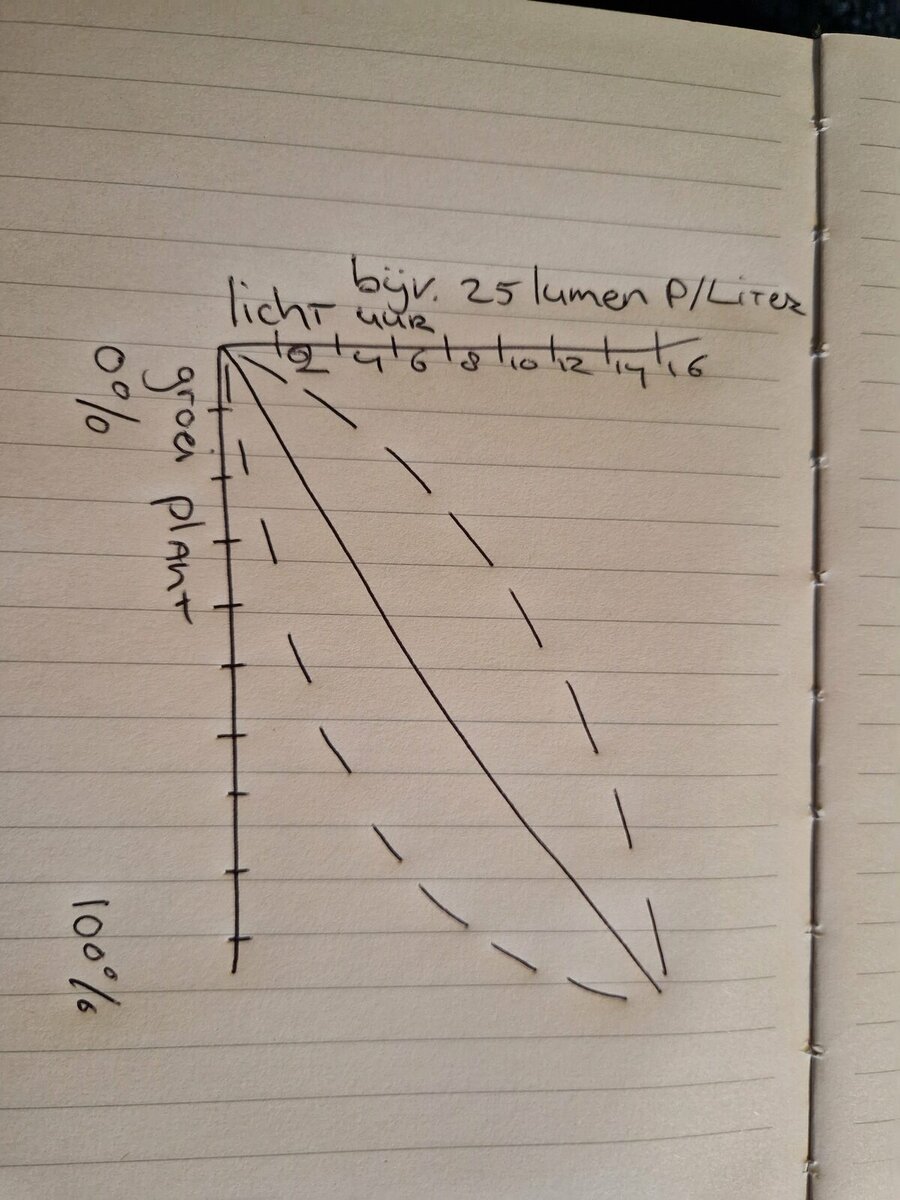 bijv. 25 lumen P/Liter
licht uur
2 4 6 8 10 12 14 16
0%
groei plant
100%